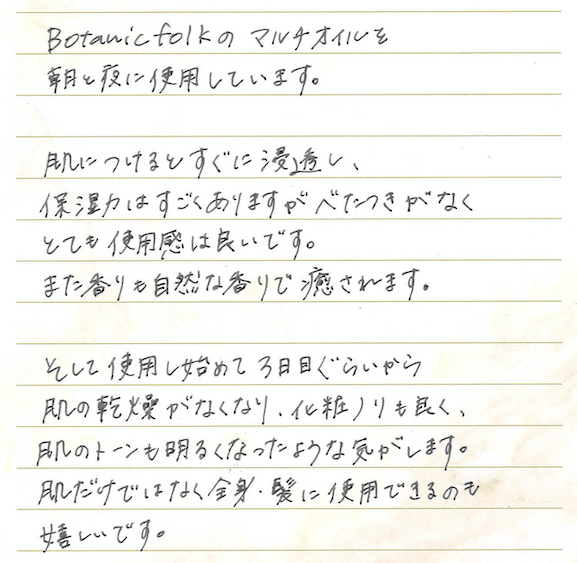 Botanicfolkの マルチオイルを
朝と夜に使用しています。
肌につけるとすぐに浸透し、
保湿力はすごくありますがべたつきがなく
とても使用感は良いです。
また香りも自然な香りで癒されます。
そして使用し始めて3日目ぐらいから
肌の乾燥がなくなり、化粧ノリも良く、
肌のトーンも明るくなったような気がします。
肌だけではなく全身・髪に使用できるのも
嬉しいです。